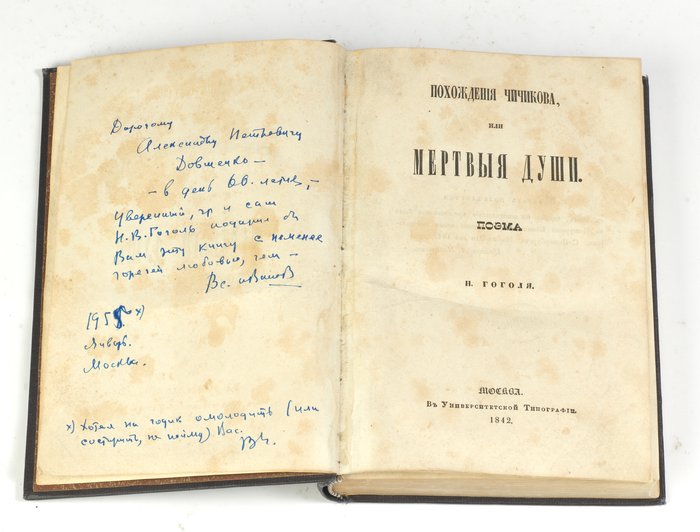 Дорогому
Александру Петровичу
Довженко –
– в день 60-летия, –
уверенный, что и сам
Н. В. Гоголь подарил бы
Вам эту книгу с не менее
горячей любовью, чем –
Вс. Иванов
195 х)
Январь.
Москва.
х) Хотел на годик омолодить (или
состарить, не пойму) Вас.
ПОХОЖДЕНІЯ ЧИЧИКОВА,
ИЛИ
МЕРТВЫЯ ДУШИ.
ПОЭМА
Н. ГОГОЛЯ.
МОСКВА.
Въ Университетской Типографіи.
1842.